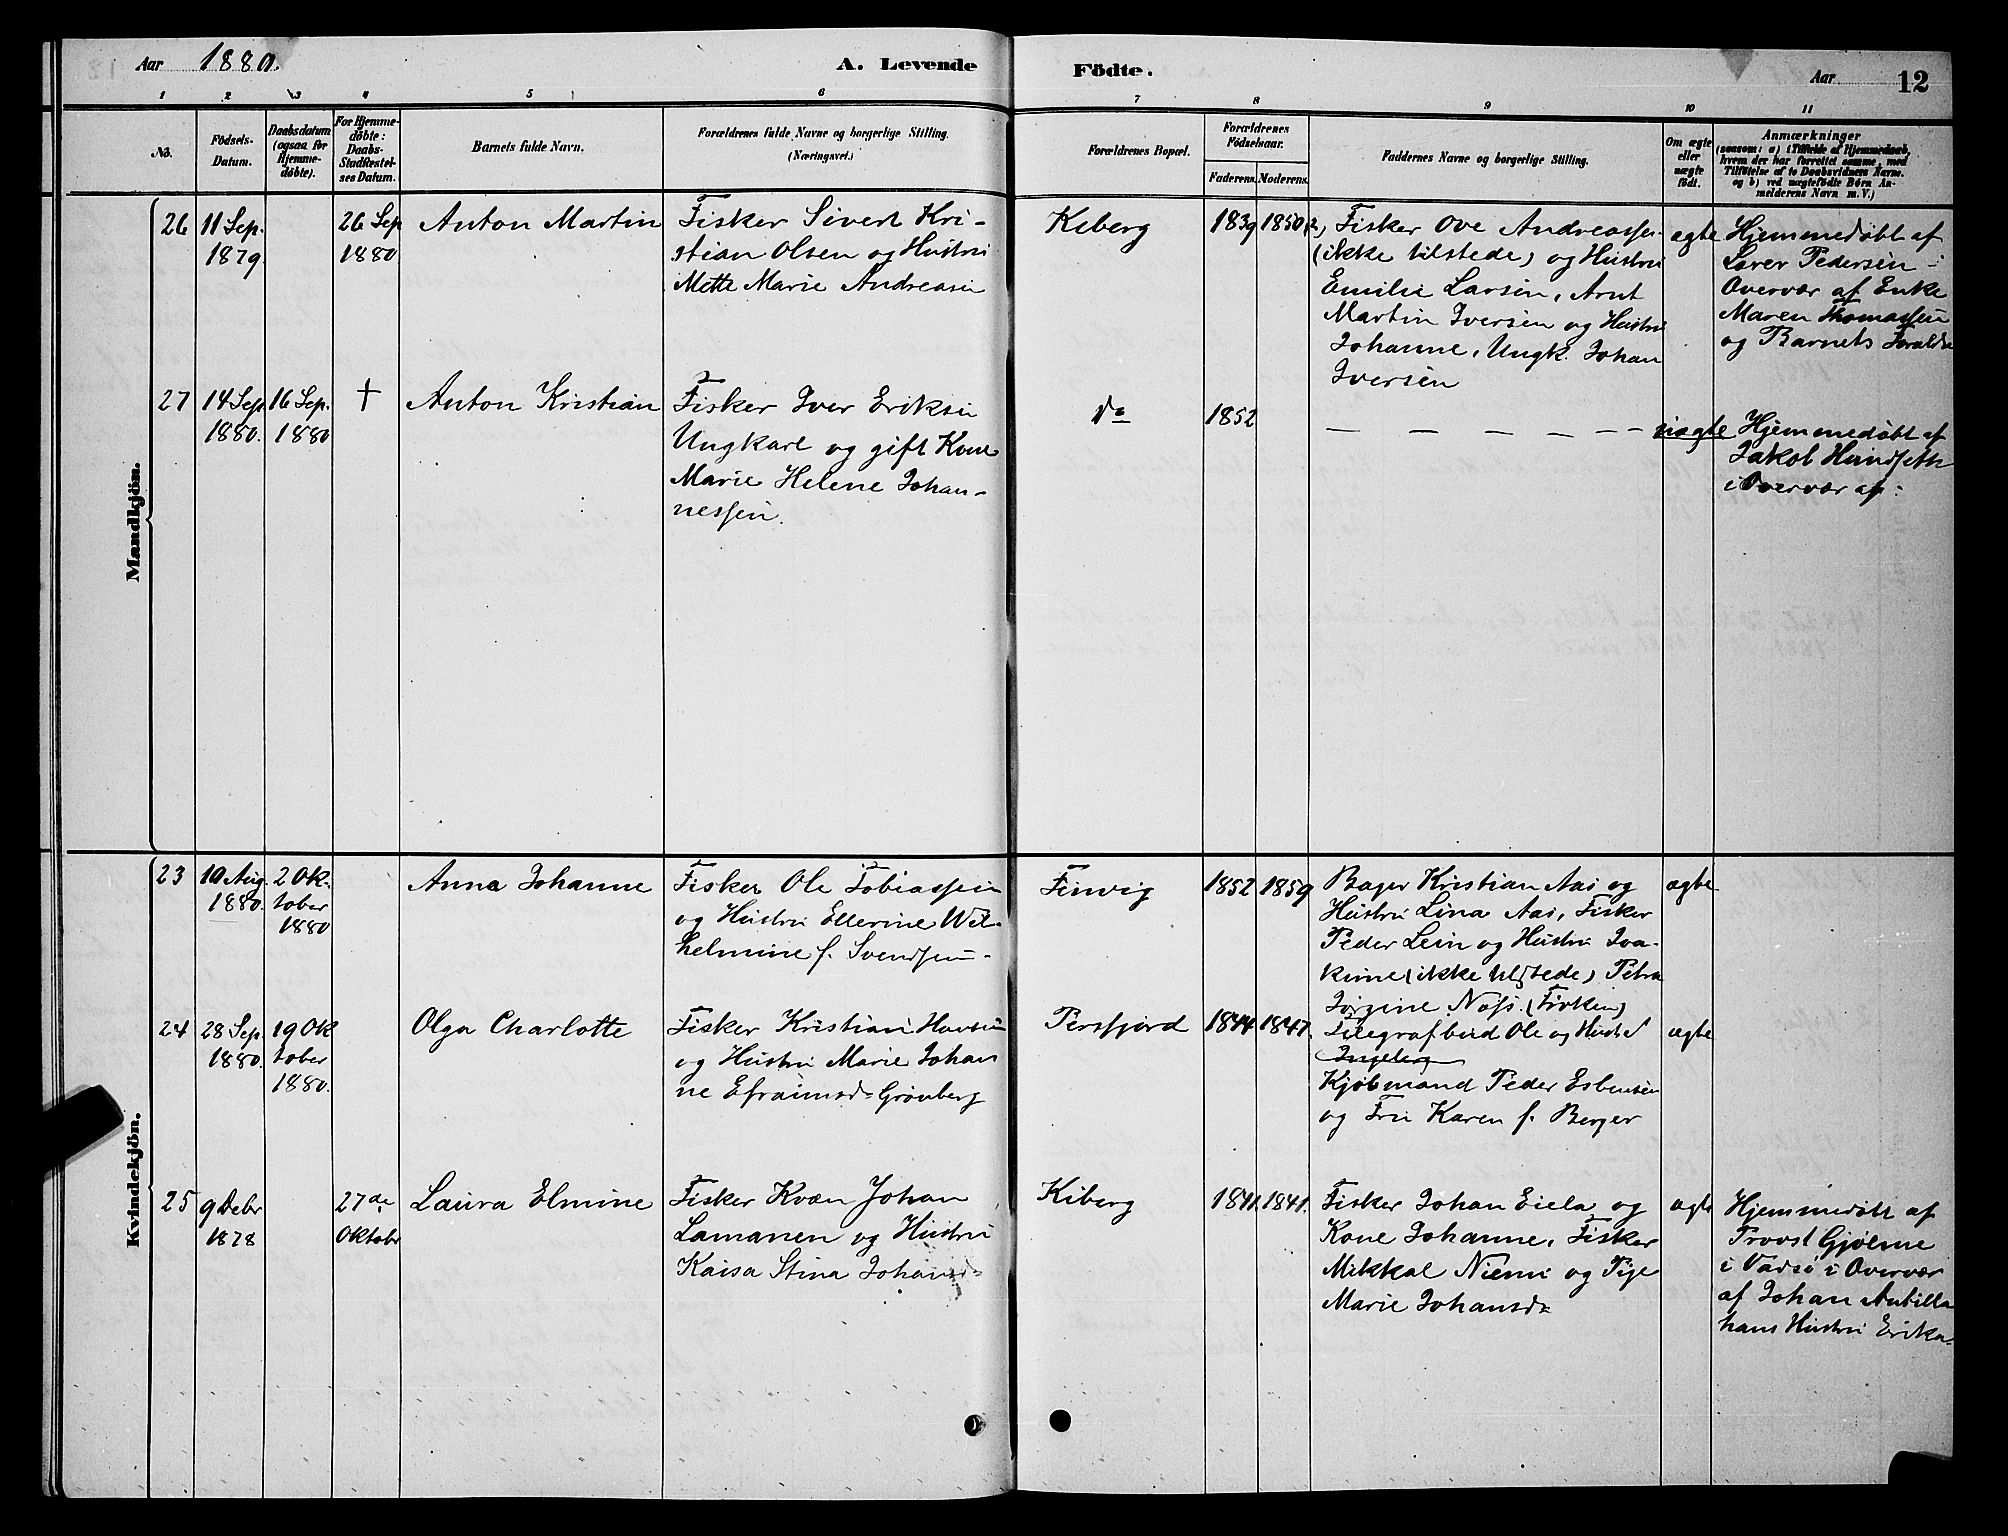 Aar 1880.
A. Levende Födte.
Aar
12
1 2 3 4 5 6 7 8 9 10 11
No.
Födsels-
Datum.
Daabsdatum
(ogsaa for
Hjemme-
döbte).
For Hjemme-
döbte:
Daabs-
Stadfæstel-
ses Datum.
Barnets fulde Navn.
Forældrenes fulde Navne og borgerlige Stilling.
(Næringsvei.)
Forældrenes Bopæl.
Forældrenes
Födselsaar.
Faderens. Moderens.
Faddernes Navne og borgerlige Stilling.
Om ægte
eller
uægte
födt.
Anmærkninger
(saasom: a) i Tilfælde af Hjemmedaab,
hvem der har forrettet samme, med
Tilföielse af to Daabsvidners Navne.
og b) ved uægtefödte Börn An-
melderens Navn m. V.)
Mandkjön.
26
11 Sep.
1879.
26 Sep
1880
Anton Martin
Fisker Sivert Kri-
stian Olsen og Hustru
Mette Marie Andreasen
Kiberg
1839
1850
Fisker Ove Andreassen
(ikke tilstede) og Hustru
Emilie Larsen, Arnt
Martin Iversen og Hustru
Johanne, Ungk. Johan
Iversen
ægte
Hjemmedøbt af
Lærer Pedersen i
Overvær af Enke
Maren Thomassen
og Barnets Foræld
27
14 Sep
1880.
16 Sep.
1880
†
Anton Kristian
Fisker Iver Eriksen
Ungkarl og gift Kone
Marie Helene Johan-
nessen.
Do
1852
— — — — — —
uægte
Hjemmedøbt af
Jakob
i Overvær af:
Kvindekjön.
23
10 Aug.
1880.
2 Ok-
tober
1880
Anna Johanne
Fisker Ole Tobiassen
og Hustru Ellerine Wil-
helmine f. Svendsen
Finvig
1852
1859
Bager Kristian Aas og
Hustru Lina Aas, Fisker
Peder Lein og Hustru Joa-
kime (ikke tilstede) Petra
Jørgine Nøss. (Frøken)
ægte
24
28 Sep
1880.
19 Ok
tober
1880.
Olga Charlotte
Fisker Kristian Hansen
og Hustru Marie Johan
ne Efraimsd= Grønberg
Persfjord
1844
1847.
Telegrafbud Ole og Hustr
Ingeborg
Kjøbmand Peder Esbensen
og Fru Karen f. Berger
ægte
25
9 Debr
1878
27de
Oktober
Laura Elmine
Fisker Kvæn Johan
Lamanen og Hustru
Kaisa Stina Johansd=
Kiberg
1841.
1841.
Fisker Johan Eiela og
Kone Johanne, Fisker
Mikkal Niemi og Pige
Marie Johansd=
ægte
Hjemmedøbt af
Provst Gjølme
i Vadsø i Overvær
af Johan Antilla
hans Hustru Erika